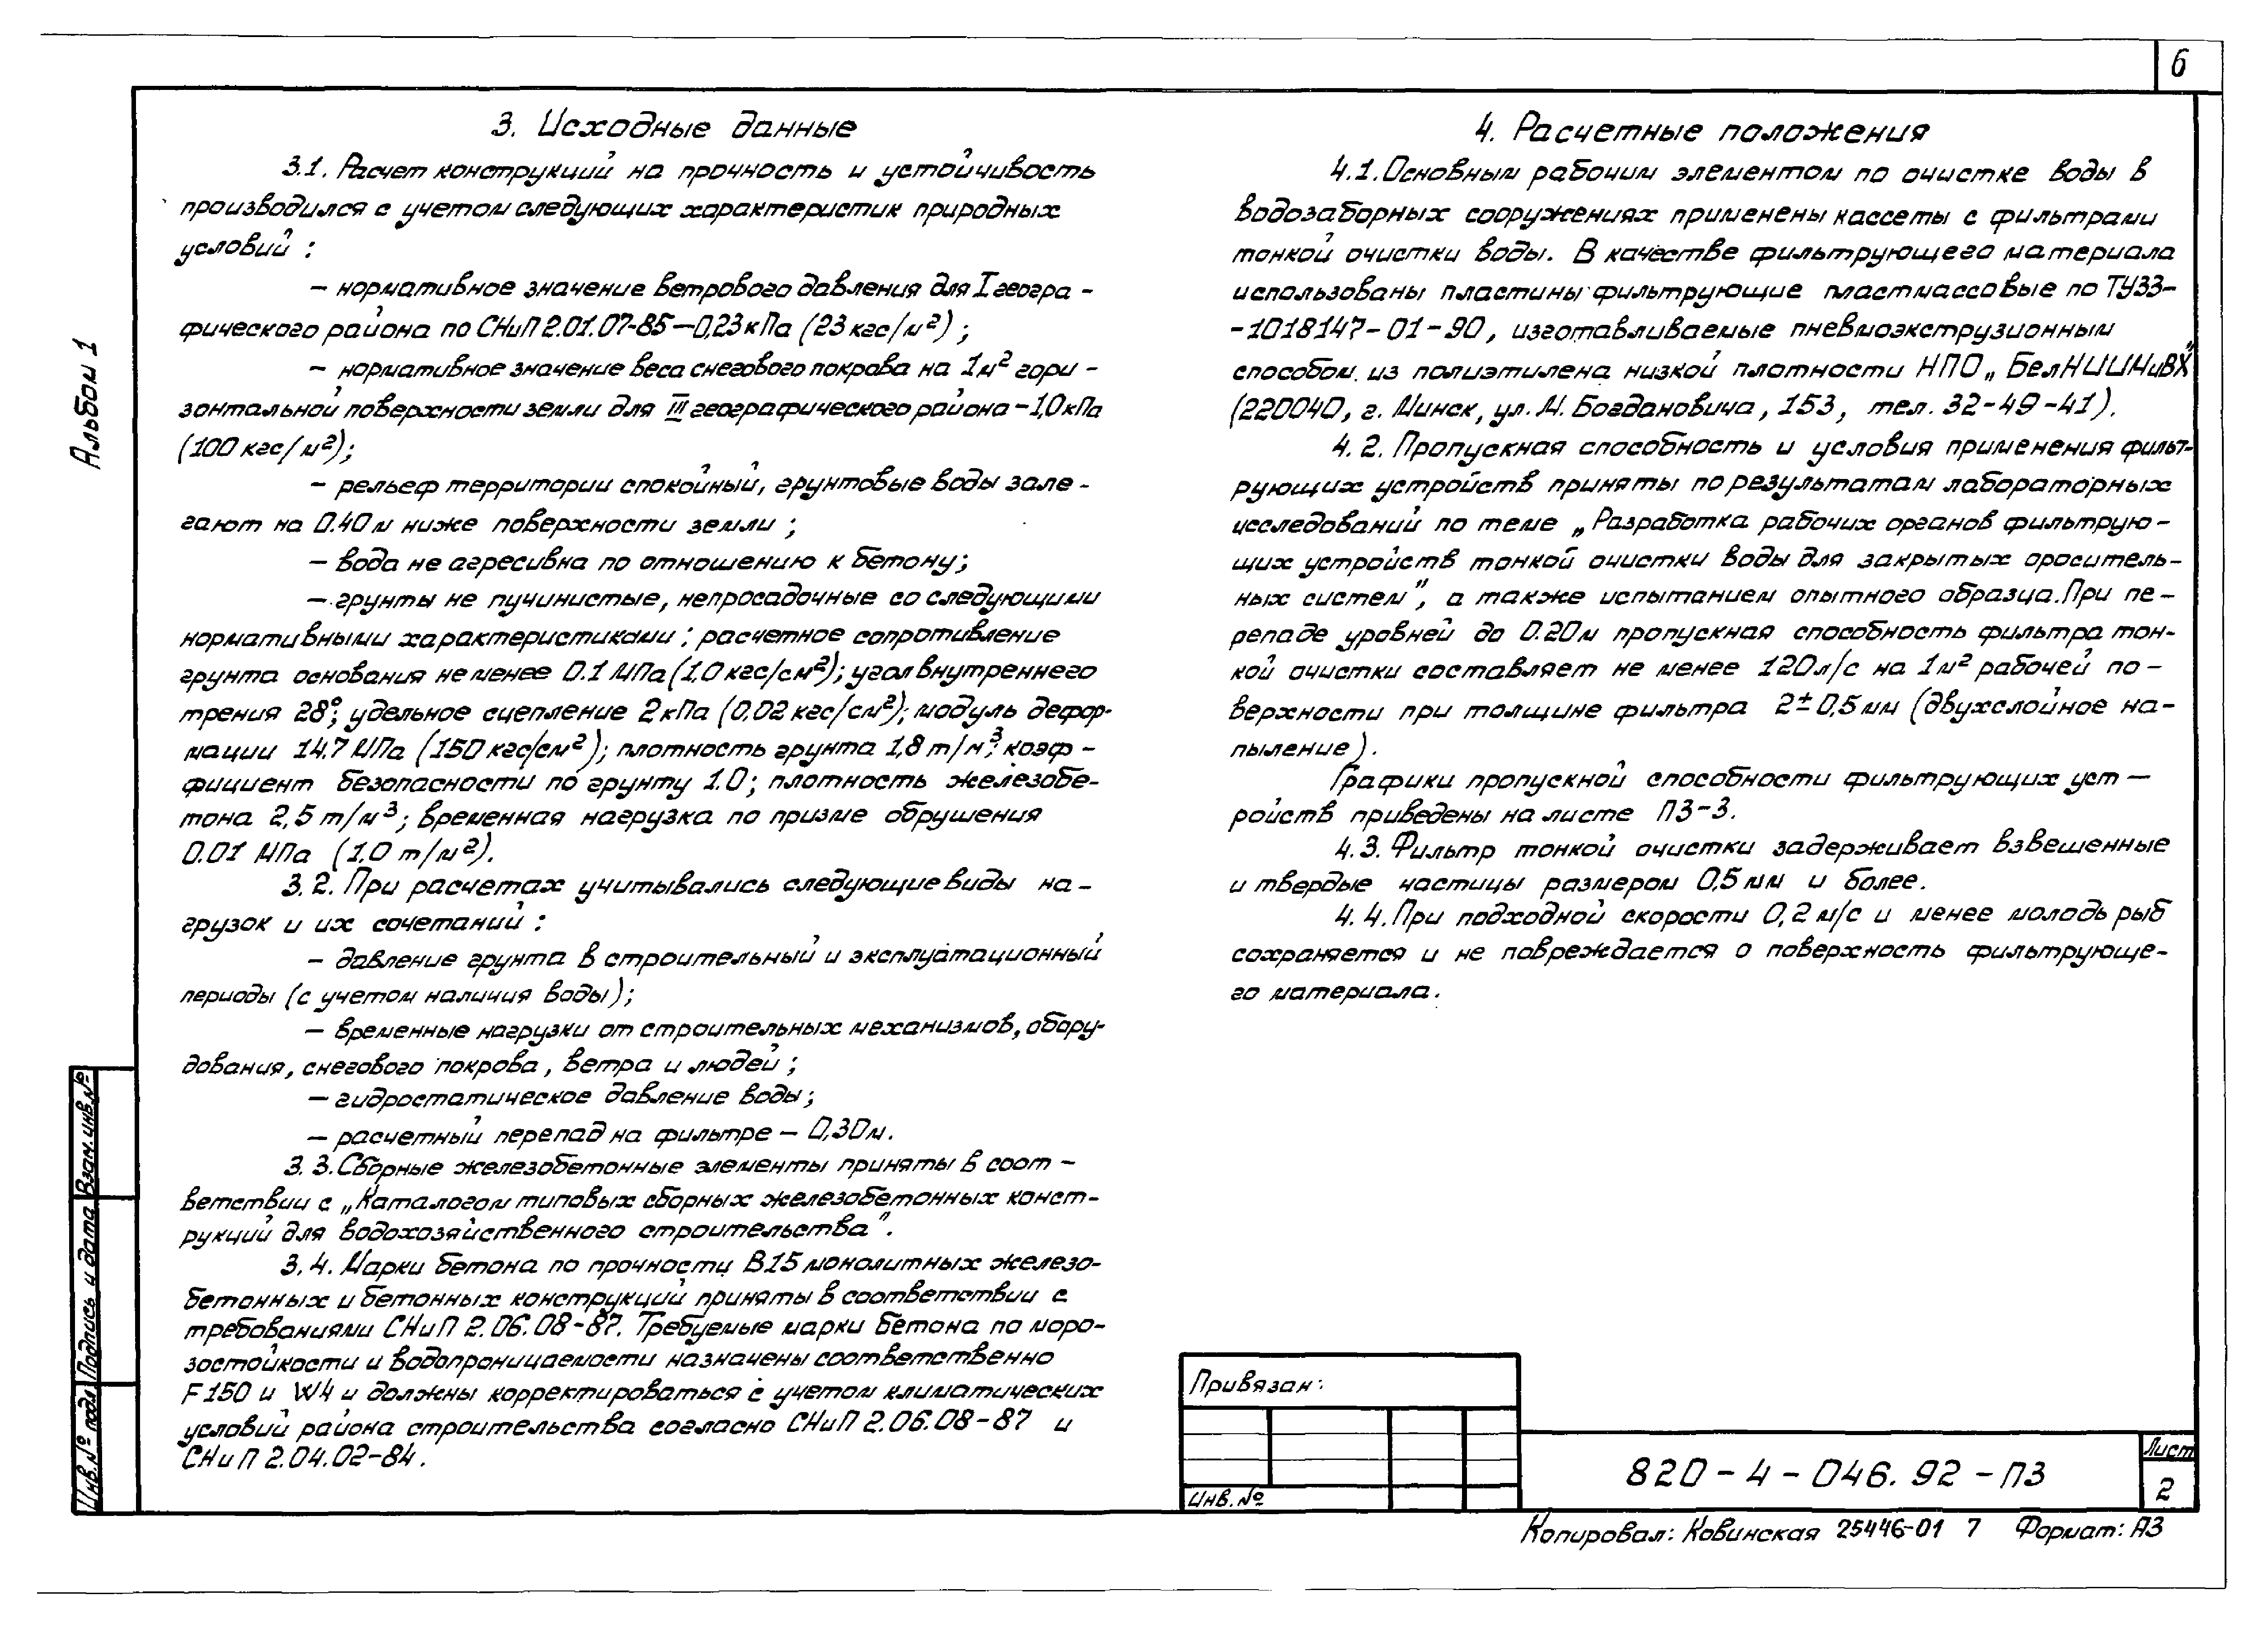 6
Альбом 1
3. Исходные данные
3.1. Расчет конструкций на прочность и устойчивость
производился с учетом следующих характеристик природных
условий :
— нормативное значение ветрового давления для I геогра -
фического района по СНиП 2.01.07-85 — 0,23 кПа (23 кгс/м²) ;
— нормативное значение веса снегового покрова на 1м² гори -
зонтальной поверхности земли для III географического района - 1,0 кПа
(100 кгс/м²);
— рельеф территории спокойный, грунтовые воды зале -
гают на 0.40 м ниже поверхности земли ;
— вода не агресивна по отношению к бетону;
— грунты не пучинистые, непросадочные со следующими
нормативными характеристиками : расчетное сопротивление
грунта основания не менее 0.1 МПа (1,0 кгс/см²); угол внутреннего
трения 28°; удельное сцепление 2 кПа (0,02 кгс/см²); модуль дефор-
мации 14.7 МПа (150 кгс/см²); плотность грунта 1,8 т/м³; коэф -
фициент безопасности по грунту 1.0; плотность железобе-
тона 2,5 т/м³; временная нагрузка по призме обрушения
0.01 МПа (1.0 т/м²).
3.2. При расчетах учитывались следующие виды на -
грузок и их сочетаний :
— давление грунта в строительный и эксплуатационный
периоды (с учетом наличия воды);
— временные нагрузки от строительных механизмов, обору-
дования, снегового покрова, ветра и людей ;
— гидростатическое давление воды;
— расчетный перепад на фильтре — 0,30м.
3.3. Сборные железобетонные элементы приняты в соот -
ветствии с „Каталогом типовых сборных железобетонных конст-
рукций для водохозяйственного строительства".
3.4. Марки бетона по прочности В15 монолитных железо-
бетонных и бетонных конструкций приняты в соответствии с
требованиями СНиП 2.06.08-87. Требуемые марки бетона по моро-
зостойкости и водопроницаемости назначены соответственно
F150 и W4 и должны корректироваться с учетом климатических
условий района строительства согласно СНиП 2.06.08-87 и
СНиП 2.04.02-84.
4. Расчетные положения
4.1. Основным рабочим элементом по очистке воды в
водозаборных сооружениях применены кассеты с фильтрами
тонкой очистки воды. В качестве фильтрующего материала
использованы пластины фильтрующие пластмассовые по ТУ33-
-1018147-01-90, изготавливаемые пневмоэкструзионным
способом из полиэтилена низкой плотности НПО „БелНИИМиВХ"
(220040, г. Минск, ул. М. Богдановича, 153, тел. 32-49-41).
4.2. Пропускная способность и условия применения фильт-
рующих устройств приняты по результатам лабораторных
исследований по теме „Разработка рабочих органов фильтрую -
щих устройств тонкой очистки воды для закрытых ороситель-
ных систем", а также испытанием опытного образца. При пе -
репаде уровней до 0.20м пропускная способность фильтра тон-
кой очистки составляет не менее 120 л/с на 1м² рабочей по -
верхности при толщине фильтра 2±0,5 мм (двухслойное на-
пыление).
Графики пропускной способности фильтрующих уст —
ройств приведены на листе ПЗ-3.
4.3. Фильтр тонкой очистки задерживает взвешенные
и твердые частицы размером 0,5 мм и более.
4.4. При подходной скорости 0,2 м/с и менее молодь рыб
сохраняется и не повреждается о поверхность фильтрующе-
го материала.
Взам. инв. №
Подпись и дата
Инв. № подл
Привязан:
Инв. №
820-4-046.92-ПЗ
Лист
2
Копировал: Ковинская 25446-01 7 Формат: А3